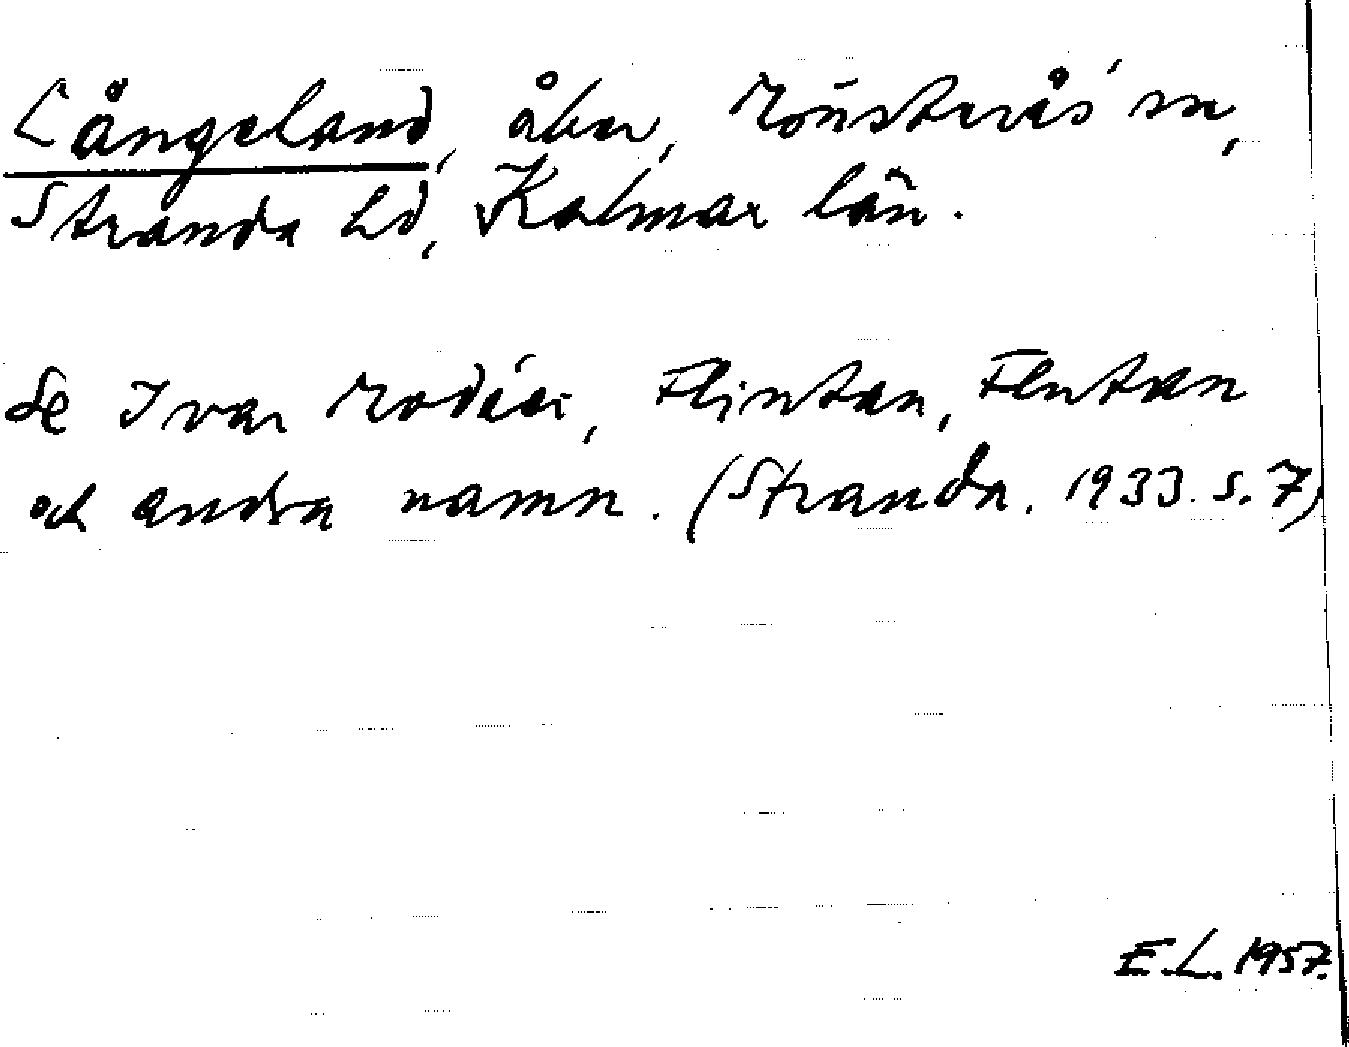 Långeland, åker, Mönsterås' sn,
Stranda hd, Kalmar län.
Se Ivar Modéer, Flintan, Flutan
och andra namn. (Stranda. 1933. s. 7)
E.L. 1957.